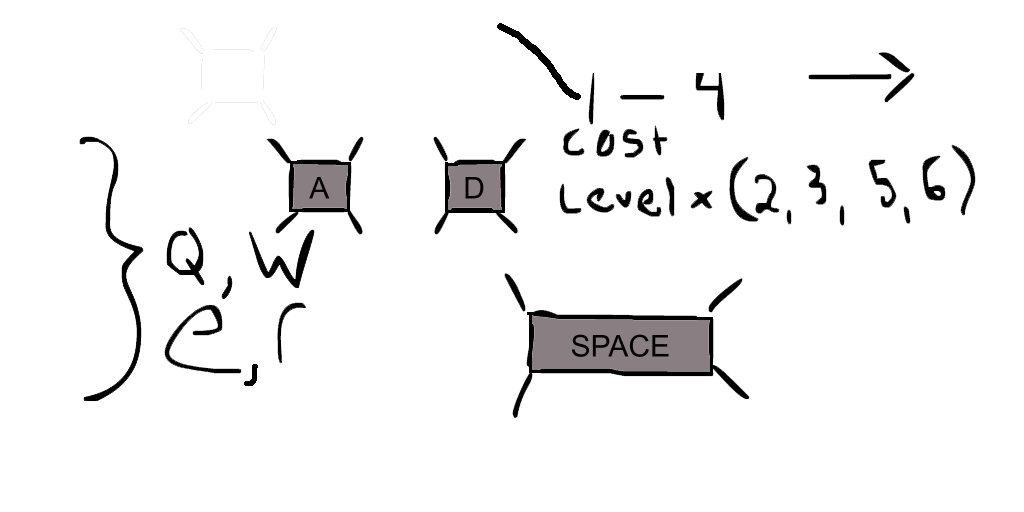 1 - 4
cost
A D
Level x (2, 3, 5, 6)
Q, W
e, r
SPACE